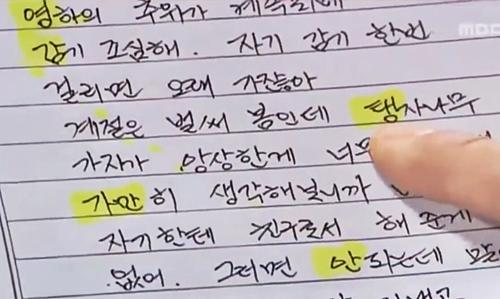 영하의 추위가 계속되네
감기 조심해. 자기 감기 한번
걸리면 오래 가잖아
계절은 벌써 봄인데 탱자나무
가자가 앙상한게 너무
가만히 생각해보니까
자기한테 친구로서 해준게
없어. 그러면 안되는데
MBC